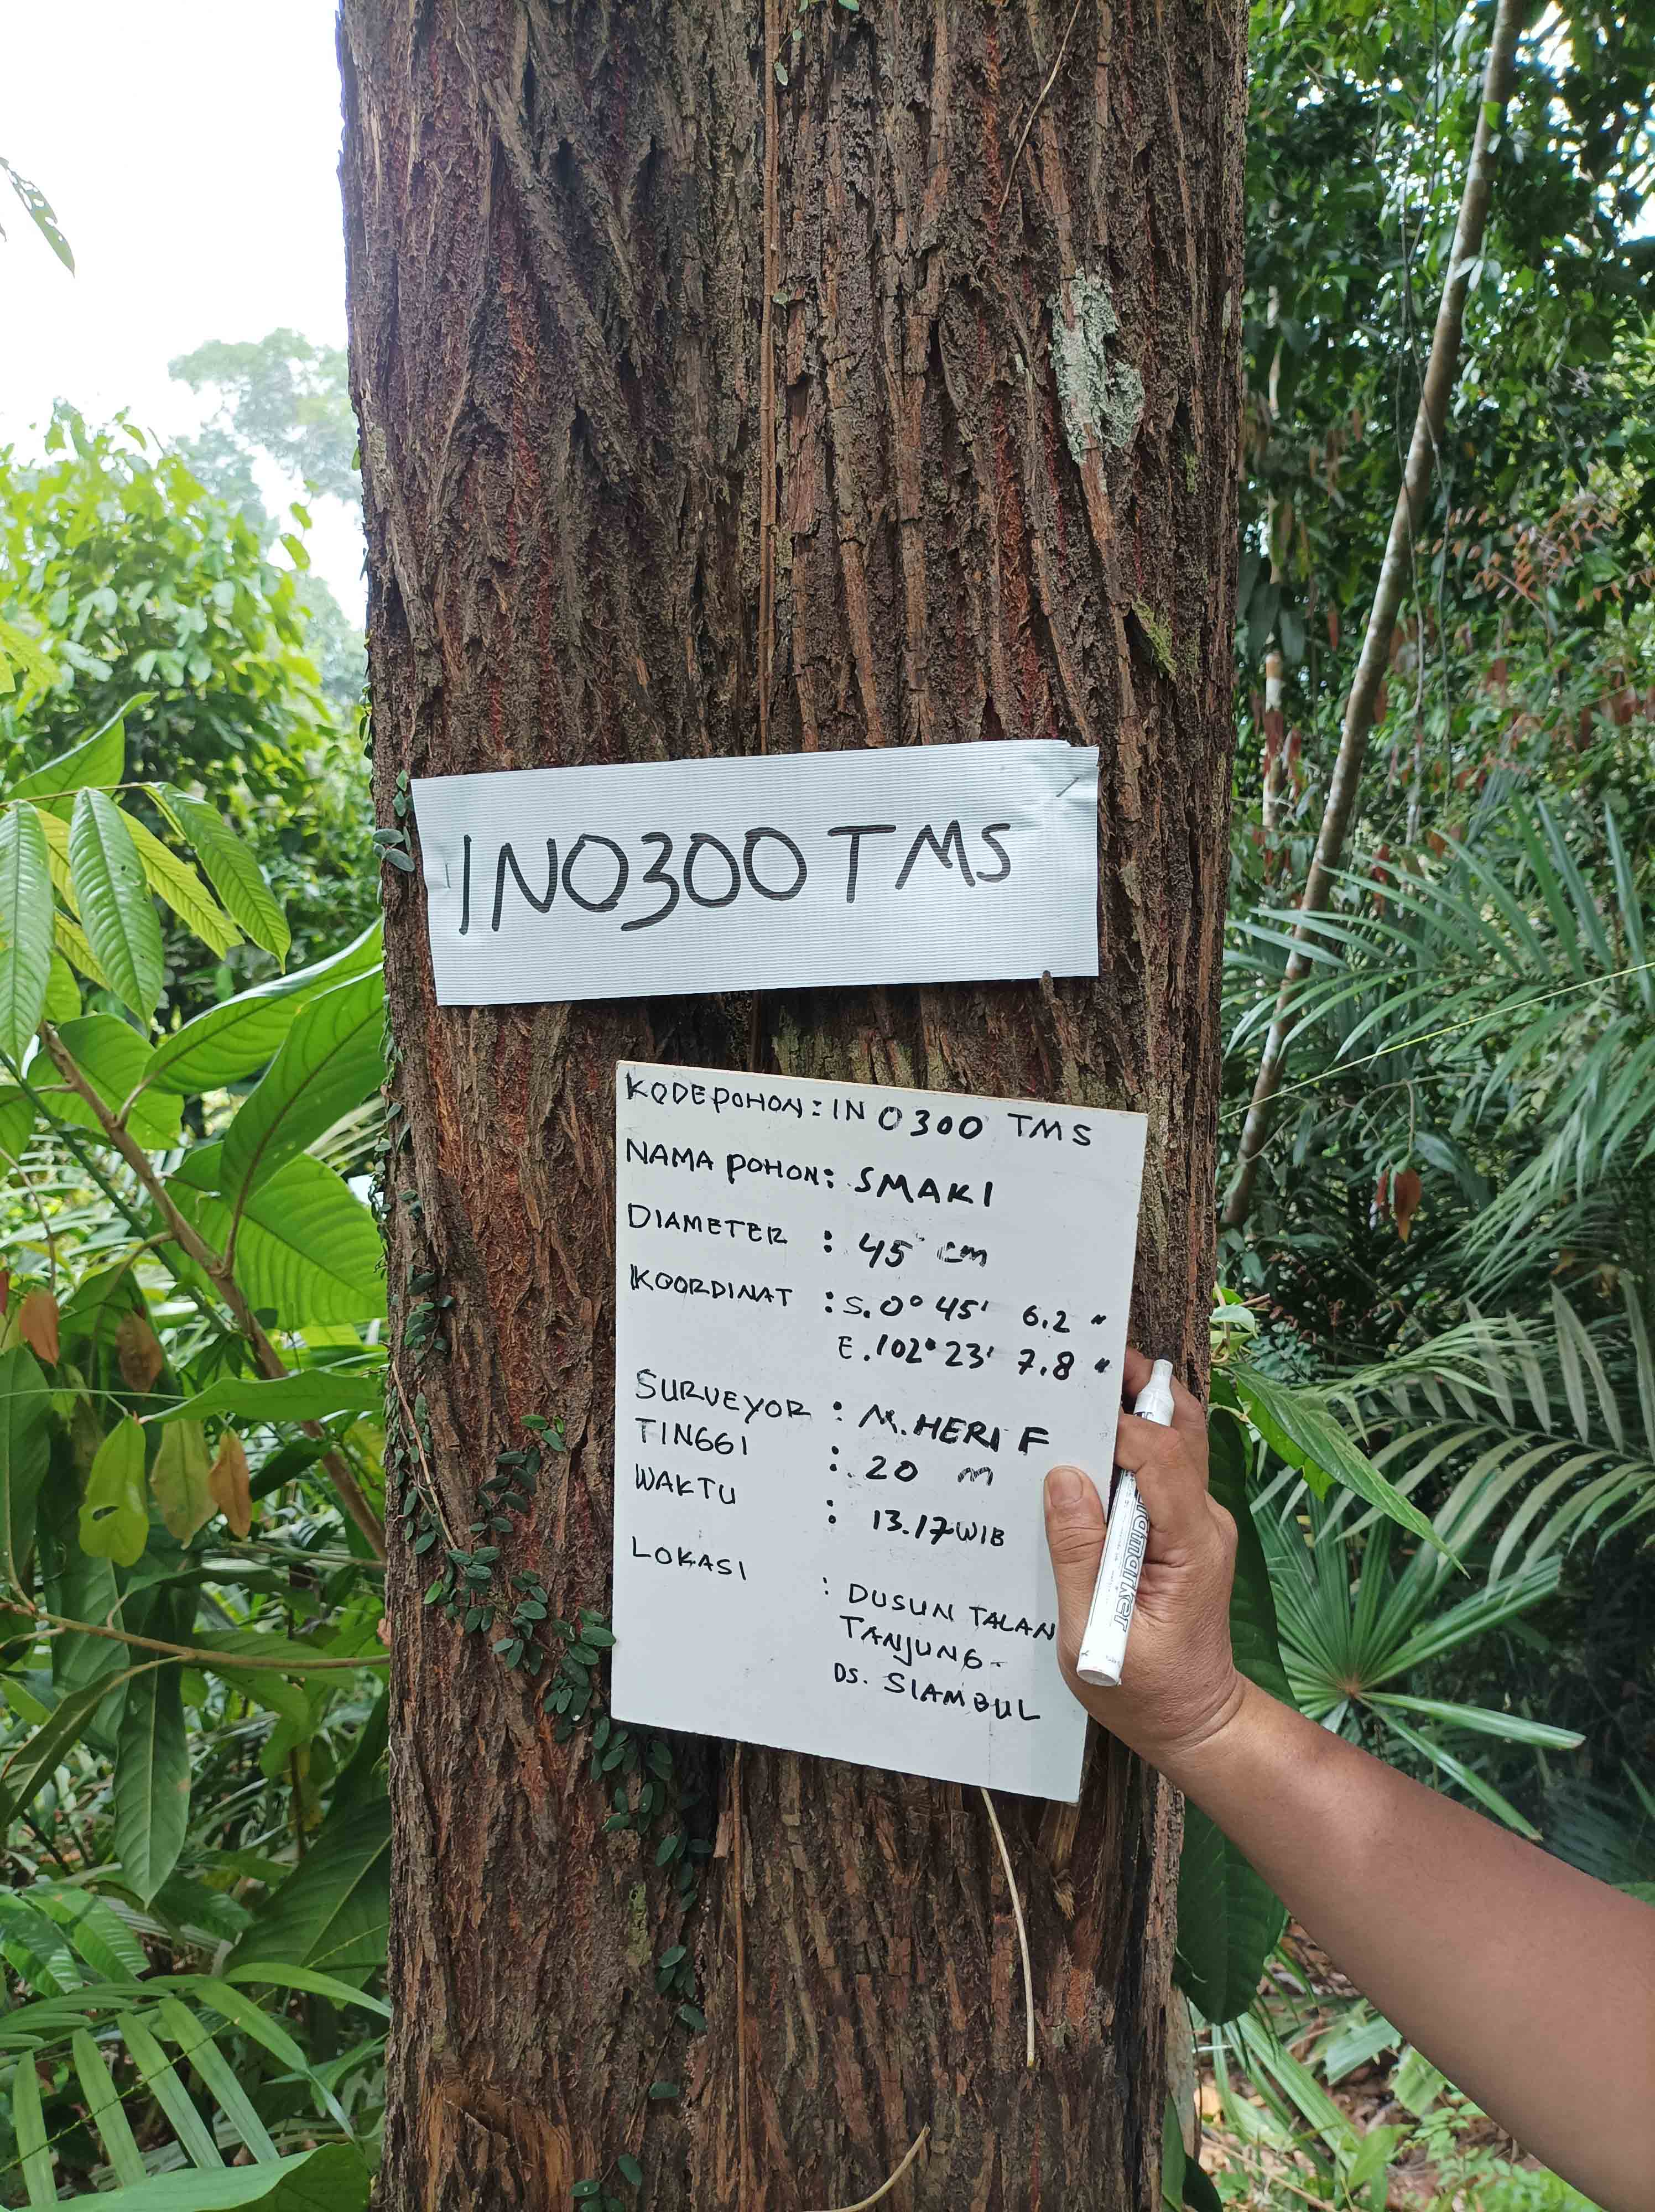 IN0300 TMS
KODE POHON : IN 0300 TMS
NAMA POHON : SMAKI
DIAMETER : 45 cm
KOORDINAT : S. 0° 45' 6.2 "
E. 102° 23' 7.8 "
SURVEYOR : M. HERI F
TINGGI : 20 m
WAKTU : 13.17 WIB
LOKASI : DUSUN TALAN
TANJUNG -
DS. SIAMBUL